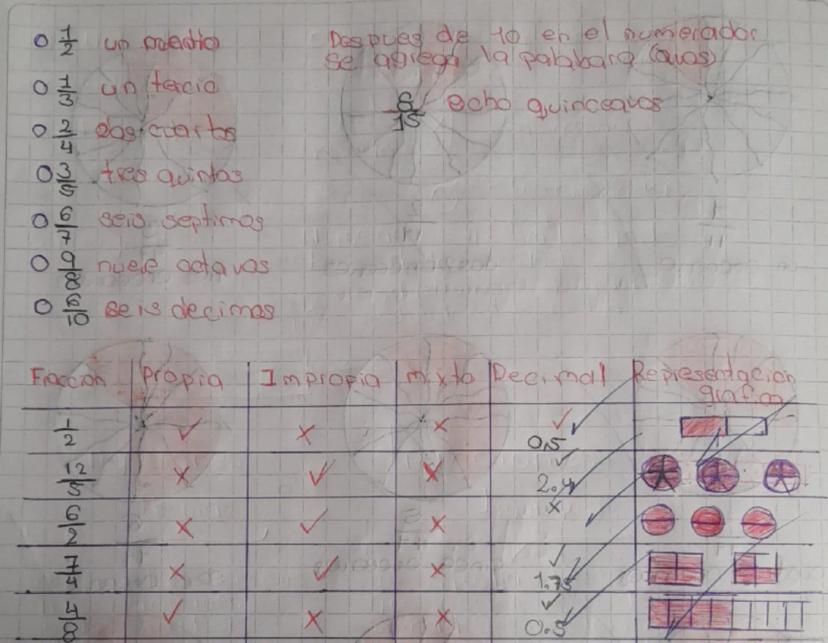 1/2 un medio
Despues de 10 en el numerador
se agrega la palabara (avos)
1/3 un tercio
8/15 ocho quinceavos
2/4 dos cuartos
3/5 tres quintos
6/7 seis septimos
9/8 nueve octavos
6/10 seis decimos
Fraccion Propia Impropia mixto Decimal Representacion
grafica
1/2 ✓ x x ✓ 0.5
12/5 x ✓ x ✓ 2.4
6/2 x ✓ x x
7/4 x ✓ x ✓ 1.75
4/8 ✓ x x ✓ 0.5